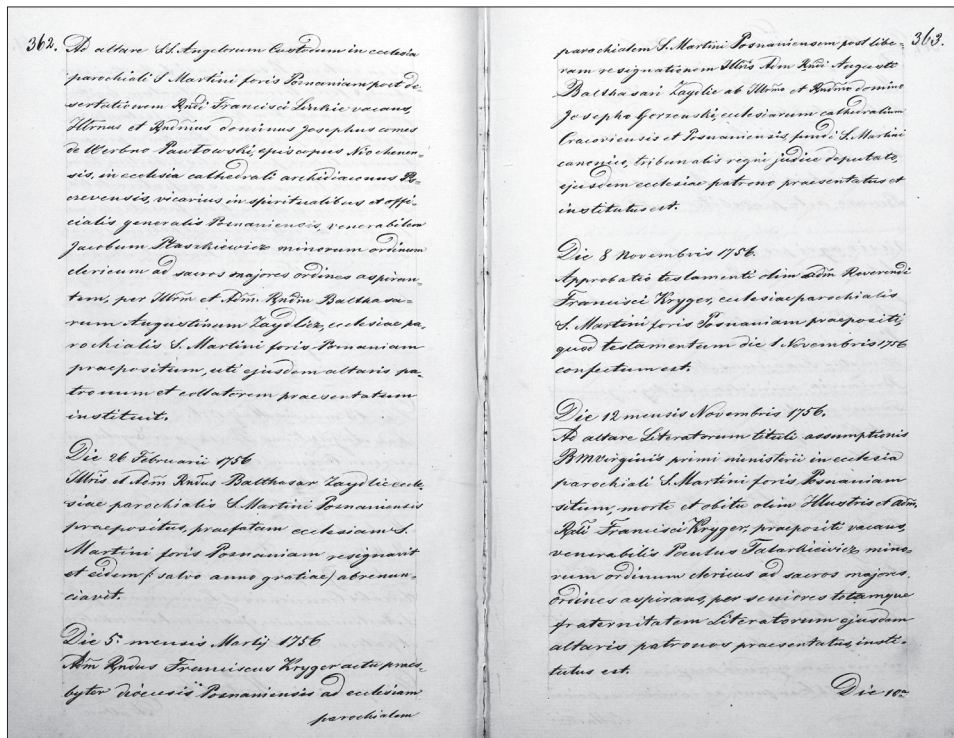 362.
Ad altare S.S. Angelorum Custodum in ecclesia
parochiali S Martini foris Posnaniam post de-
sertationem Rndi Francisci Linkie vacans,
Illrmus et Rndmus dominus Josephus comes
de Werbno Pawłowski, episcopus Niochenen-
sis, in ecclesia cathedrali archidiaconus Ps-
czevensis, vicarius in spiritualibus et offi-
cialis generalis Posnaniensis, venerabilem
Jacobum Ptaszkiewicz minorum ordinum
clericum ad sacros majores ordines aspiran-
tem, per Illrm et Adm. Rndm Balthasa-
rum Augustinum Zaydlicz, ecclesiae pa-
rochialis S. Martini foris Posnaniam
praepositum, uti ejusdem altaris pa-
tronum et collatorem praesentatum
instituit.
Die 26 Februarii 1756
Illris et Adm Rndus Balthasar Zaydlic eccle-
siae parochialis S. Martini Posnaniensis
praepositus, praefatam ecclesiam S.
Martini foris Posnaniam resignavit
et eidem /: salvo anno gratiae/ abrenun-
ciavit.
Die 5. mensis Martij 1756
Adm Rndus Franciscus Kryger actu praes-
byter diocesis Posnaniensis ad ecclesiam
parochialem
363.
parochialem S. Martini Posnaniensem post libe-
ram resignationem Illris Adm Rndi Augusto
Balthasari Zaydlic ab Illrmo et Rndmo domino
Josepho Gorzeński, ecclesiarum cathedralium
Cracoviensis et Posnaniensis, fundi S. Martini
canonico, tribunalis regni judice deputato,
ejusdem ecclesiae patrono praesentatus et
institutus est.
Die 8 Novembris 1756.
Approbatio testamenti olim adm Reverendi
Francisci Kryger, ecclesiae parochialis
S. Martini foris Posnaniam praepositi,
quod testamentum die 1 Novembris 1756
confectum est.
Die 12 mensis Novembris 1756.
Ad altare Literatorum tituli assumptionis
BMVirginis primi ministerii in ecclesia
parochiali S. Martini foris Posnaniam
situm, morte et obitu olim Illustris et adm.
Rndi Francisci Kryger, praepositi vacans,
venerabilis Paulus Tatarkiewicz mino-
rum ordinum clericus ad sacros majores
ordines aspirans, per seniores totamque
fraternitatem Literatorum ejusdem
altaris patronos praesentatus, insti-
tutus est.
Die 10na